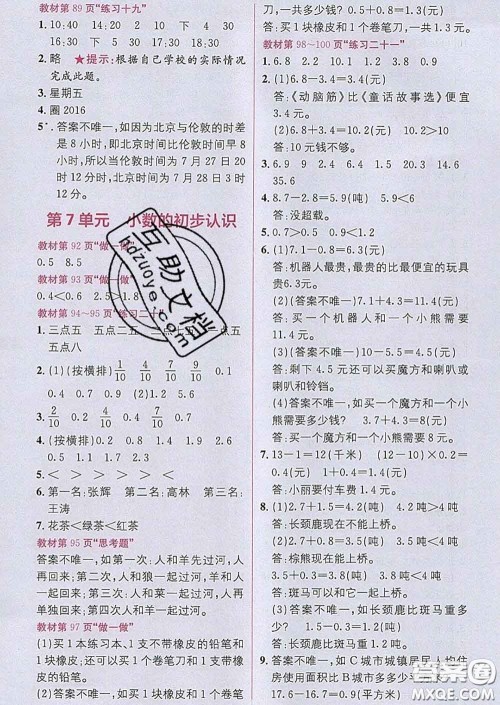 教材第89页“练习十九”
1. 10:40 14:20 2 10 20 10
16:30 5 17 18:30 18:30
2. 略 ★提示：根据自己学校的实际情况
完成此题。
3. 星期五
4. 圈 2016
5*. 答案不唯一，如因为北京与伦敦的时差
是8小时，即北京时间比伦敦时间早8
小时，所以当伦敦时间为7月27日20
时12分时，北京时间为7月28日3时
12分。
第7单元 小数的初步认识
教材第92页“做一做”
0.5 8.5
教材第93页“做一做”
0.4<0.6 2.5>1.8
教材第94~95页“练习二十”
1. 三点五 五点二五
五点八
2. (1)(按横排) 1/10 4/10 7/10
0.2 0.4 0.7 0.9 (2)1.2 1.5
3. 3/10 2/10 0.4 0.9
4. (按横排)0.1 0.3 0.6 1.1
5. < > > < >
6. 第一名：张辉 第二名：高林 第三名：
王涛
7. 花茶<绿茶<红茶
教材第95页“思考题”
答案不唯一，如第一次：人和羊先过河，人
再回来；第二次，人和狼一起过河，人和羊
一起回来；第三次，人和草一起过河，人再
单独回来；第四次，人和羊一起过河。
教材第97页“做一做”
(1)买1本练习本、1支不带橡皮的铅笔和
1块橡皮；还可以买1个卷笔刀和1支
带橡皮的铅笔。
(2)答案不唯一，如买1块橡皮和1个卷笔
刀，一共多少钱？ 0.5+0.8=1.3(元)
答：买1块橡皮和1个卷笔刀，一共1.3元。
教材第98~100页“练习二十一”
1. 6.8 2 1.2 4.2
2. (1)6.8-3.4=3.4(元)
答：《动脑筋》比《童话故事选》便宜
3.4元。
(2)6.8+3.4=10.2(元) 10.2>10
答：10元钱不够。
3. 6.9 9 2.4 6.4 1.5 3.6
4. 8.7-2.8=5.9(吨) 5.9<6
答：没超载。
5. 0.7 1.2 0.8 2.9 1.9 0.8
6. (1)7.1-0.8=6.3(元)
答：机器人最贵，最贵的比最便宜的玩具
贵6.3元。
(2)(答案不唯一)7.1+4.3=11.4(元)
答：买一个机器人和一个小熊需要
11.4元。
(3)(答案不唯一)10-5.5=4.5(元)
答：剩下4.5元还可以买魔方和喇叭或
喇叭和铃铛。
(4)(答案不唯一)如，买一个魔方和一个小
熊需要多少钱？ 3.7+4.3=8(元)
答：买一个魔方和一个小熊需要8元。
7. 13-1=12(千米) (12-10)÷2=
1(千米) 1+0.4=1.4(元)
答：小丽要付车费1.4元。
8. (1)1.2+3.0=4.2(吨) 4.2吨>4吨
答：长颈鹿现在不能上桥。
3.5+0.3=3.8(吨) 3.8吨<4吨
答：棕熊现在能上桥。
(2)答案不唯一，如，长颈鹿比斑马重多
少？ 1.2-0.8=0.4(吨)
答：长颈鹿比斑马重0.4吨。
9. 答案不唯一，如C城市城镇居民人均住
房使用面积比B城市多多少平
17.6-16.7=0.9(平方米)
互助文档
hdzuoye.com
答案圈
MXQE.COM